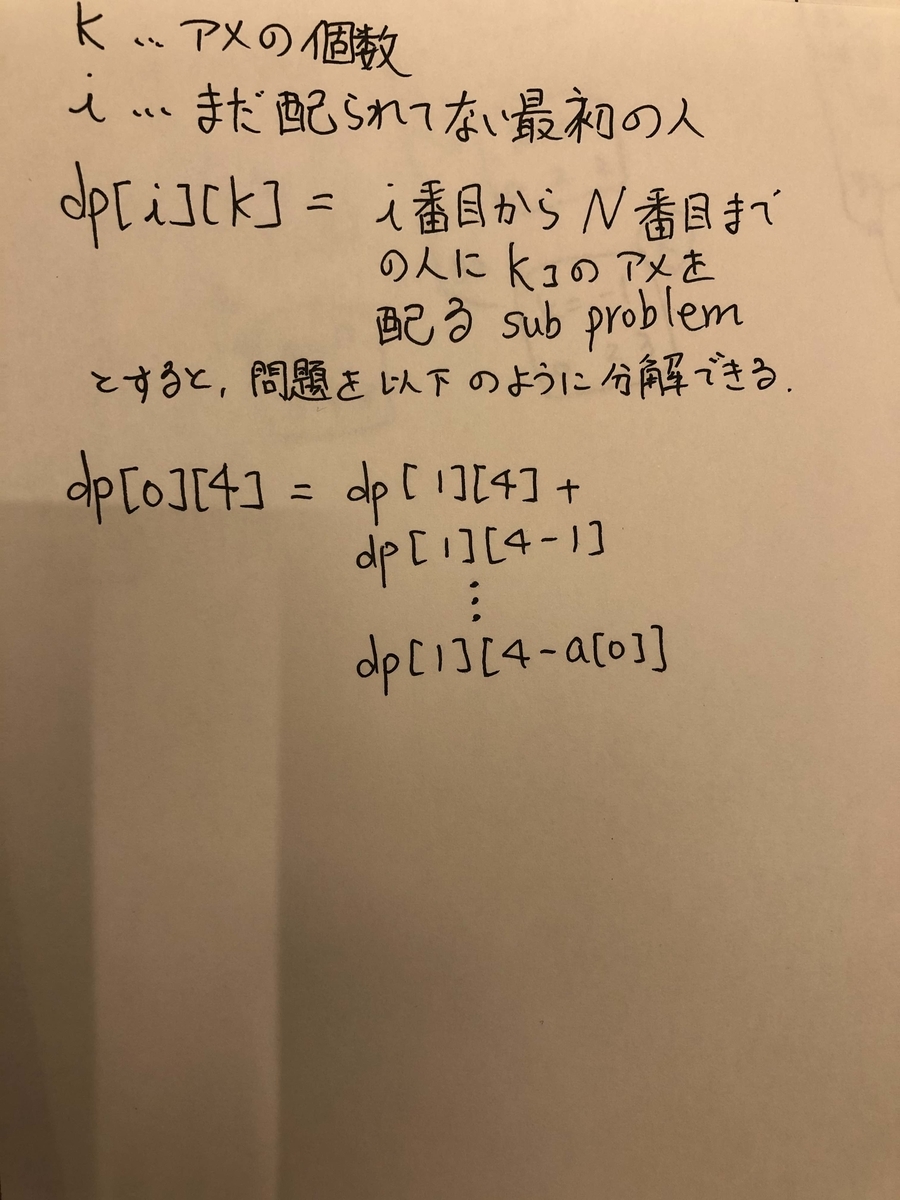 k … アメの個数
i … まだ配られてない最初の人
dp[i][k] = i番目からN番目まで
の人にkコのアメを
配る sub problem
とすると, 問題を以下のように分解できる.
dp[0][4] = dp[1][4] +
dp[1][4-1]
⋮
dp[1][4-a[0]]